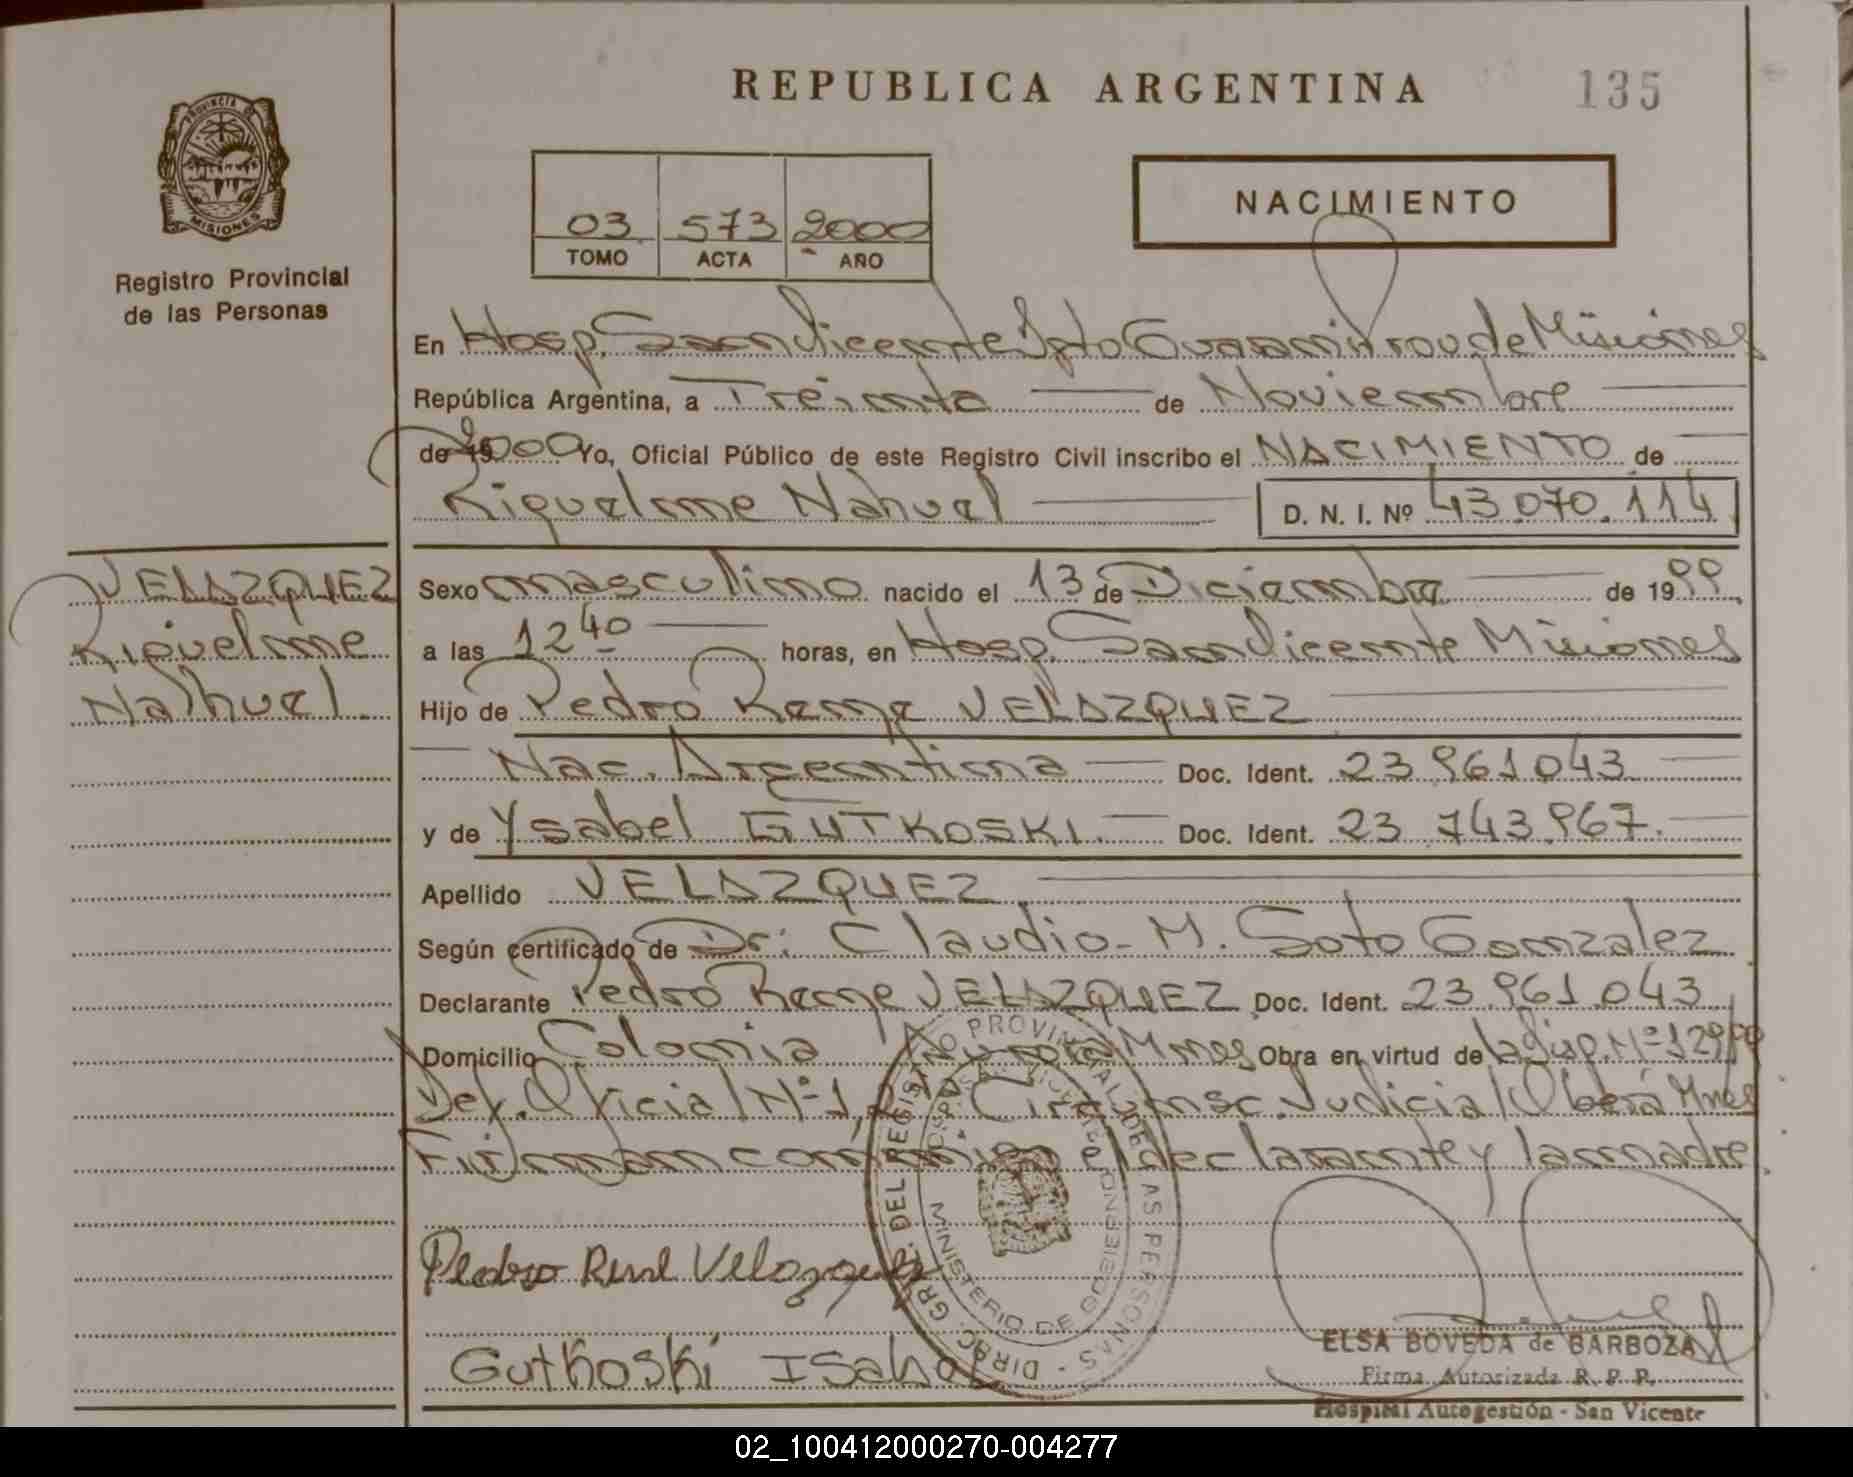 REPUBLICA ARGENTINA
135
PROVINCIA DE
MISIONES
Registro Provincial
de las Personas
03 573 2000
TOMO ACTA AÑO
NACIMIENTO
En Hosp. San Vicente Dpto Guarani Prov. de Misiones
República Argentina, a Treinta de Noviembre
de 19 2000 Yo, Oficial Público de este Registro Civil inscribo el NACIMIENTO de
Riquelme Nahuel D. N. I. Nº 43.070.114
VELAZQUEZ
Riquelme
Nahuel
Sexo masculino nacido el 13 de Diciembre de 1999
a las 12 40 horas, en Hosp. San Vicente Misiones
Hijo de Pedro Rene VELAZQUEZ
Nac. Argentina Doc. Ident. 23.961.043
y de Ysabel GUTKOSKI. Doc. Ident. 23.743.967.
Apellido VELAZQUEZ
Según certificado de Dr: Claudio M. Soto Gonzalez
Declarante Pedro Rene VELAZQUEZ Doc. Ident. 23.961.043
Domicilio Colonia Mnes Obra en virtud de la Disp. Nº 129/99
Def. Oficial Nº 1, 2da Circunsc. Judicial Oberá Mnes
Firman conmigo el declarante y la madre
Pedro Rene Velazquez
Gutkoski Isabel
DIREC. GRAL. DEL REGISTRO PROVINCIAL DE LAS PERSONAS
MINISTERIO DE GOBIERNO
ELSA BOVEDA de BARBOZA
Firma Autorizada R. P. P.
Hospital Autogestión - San Vicente
02_100412000270-004277